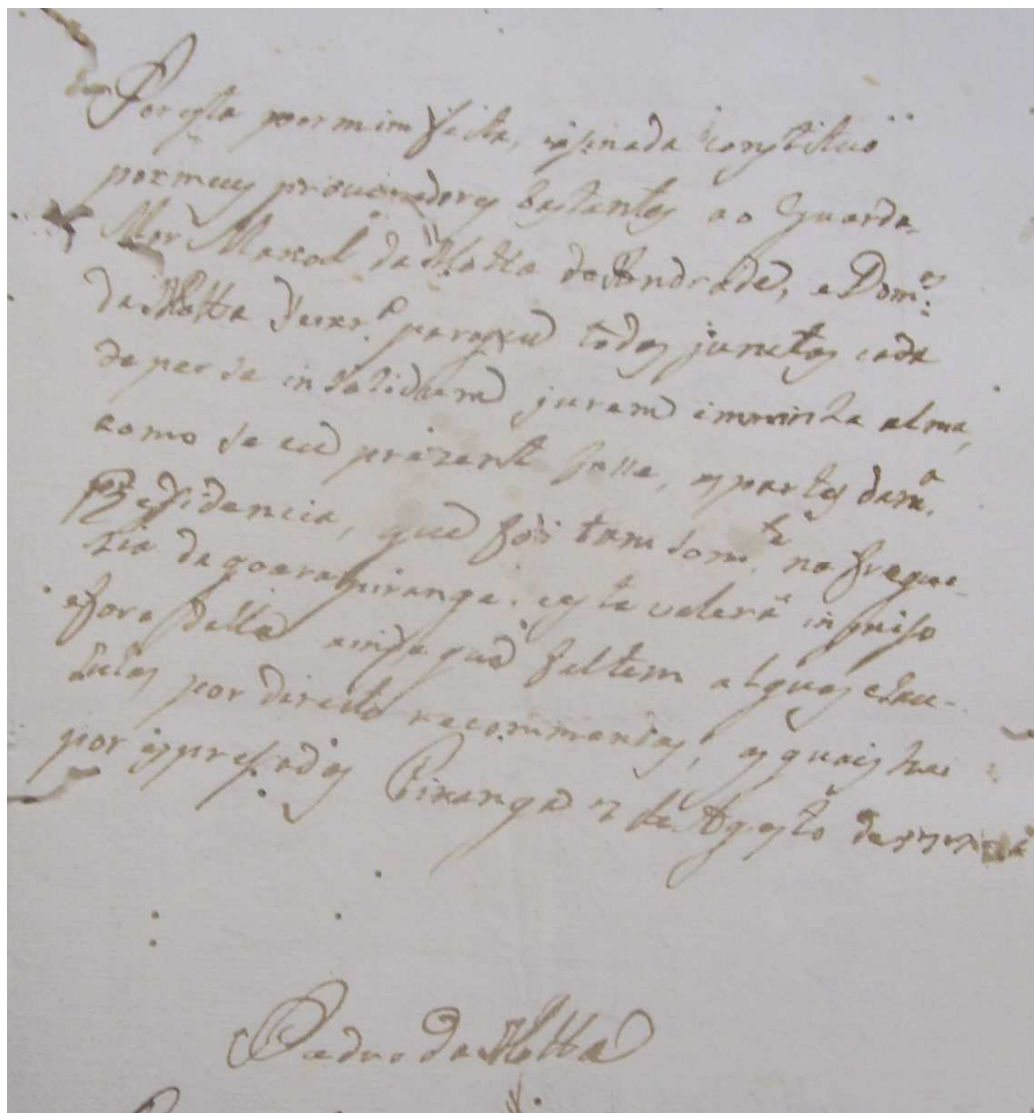 Por esta por mim feita, e asinada constituo
por meus procuradores bastantes ao Guarda
Mor Manoel da Motta de Andrade, e Dom.os
da Motta para que todos junctos e cada
de per se in solidum jurem em minha alma,
como se eu prezente fosse, e partes dar a
Residencia, que foi tam som.te na fregue-
zia de goarapiranga. e esta valerá in
e fora della ainda que faltem alguas clau-
sulas por direito recommendas, as quais hei
por expresadas Piranga de Agosto de
Pedro da Motta